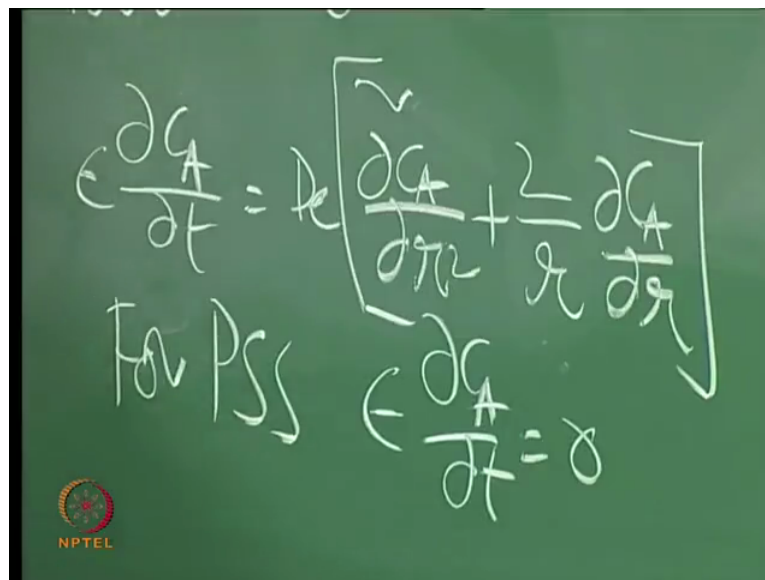 ϵ ∂C_A/∂t = De [∂²C_A/∂r² + 2/r ∂C_A/∂r]
For PSS ϵ ∂C_A/∂t = 0
NPTEL